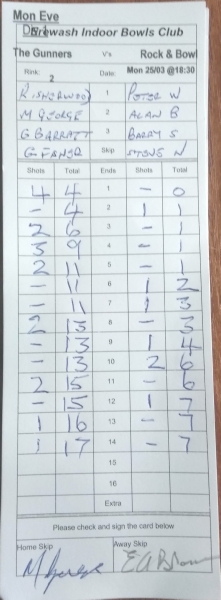 Mon Eve
Div 1 Erewash Indoor Bowls Club
The Gunners V's Rock & Bowl
Rink: 2 Date: Mon 25/03 @18:30
R ISHERWOOD 1 PETER W
M GEORGE 2 ALAN B
G BARRATT 3 BARRY S
Skip STEVE N
Shots Total Ends Shots Total
4 4 1 - 0
- 4 2 1 1
2 6 3 - 1
3 9 4 - 1
2 11 5 - 1
- 11 6 1 2
- 11 7 1 3
2 13 8 - 3
- 13 9 1 4
- 13 10 2 6
2 15 11 - 6
- 15 12 1 7
1 16 13 - 7
1 17 14 - 7
15
16
Extra
Please check and sign the card below
Home Skip Away Skip